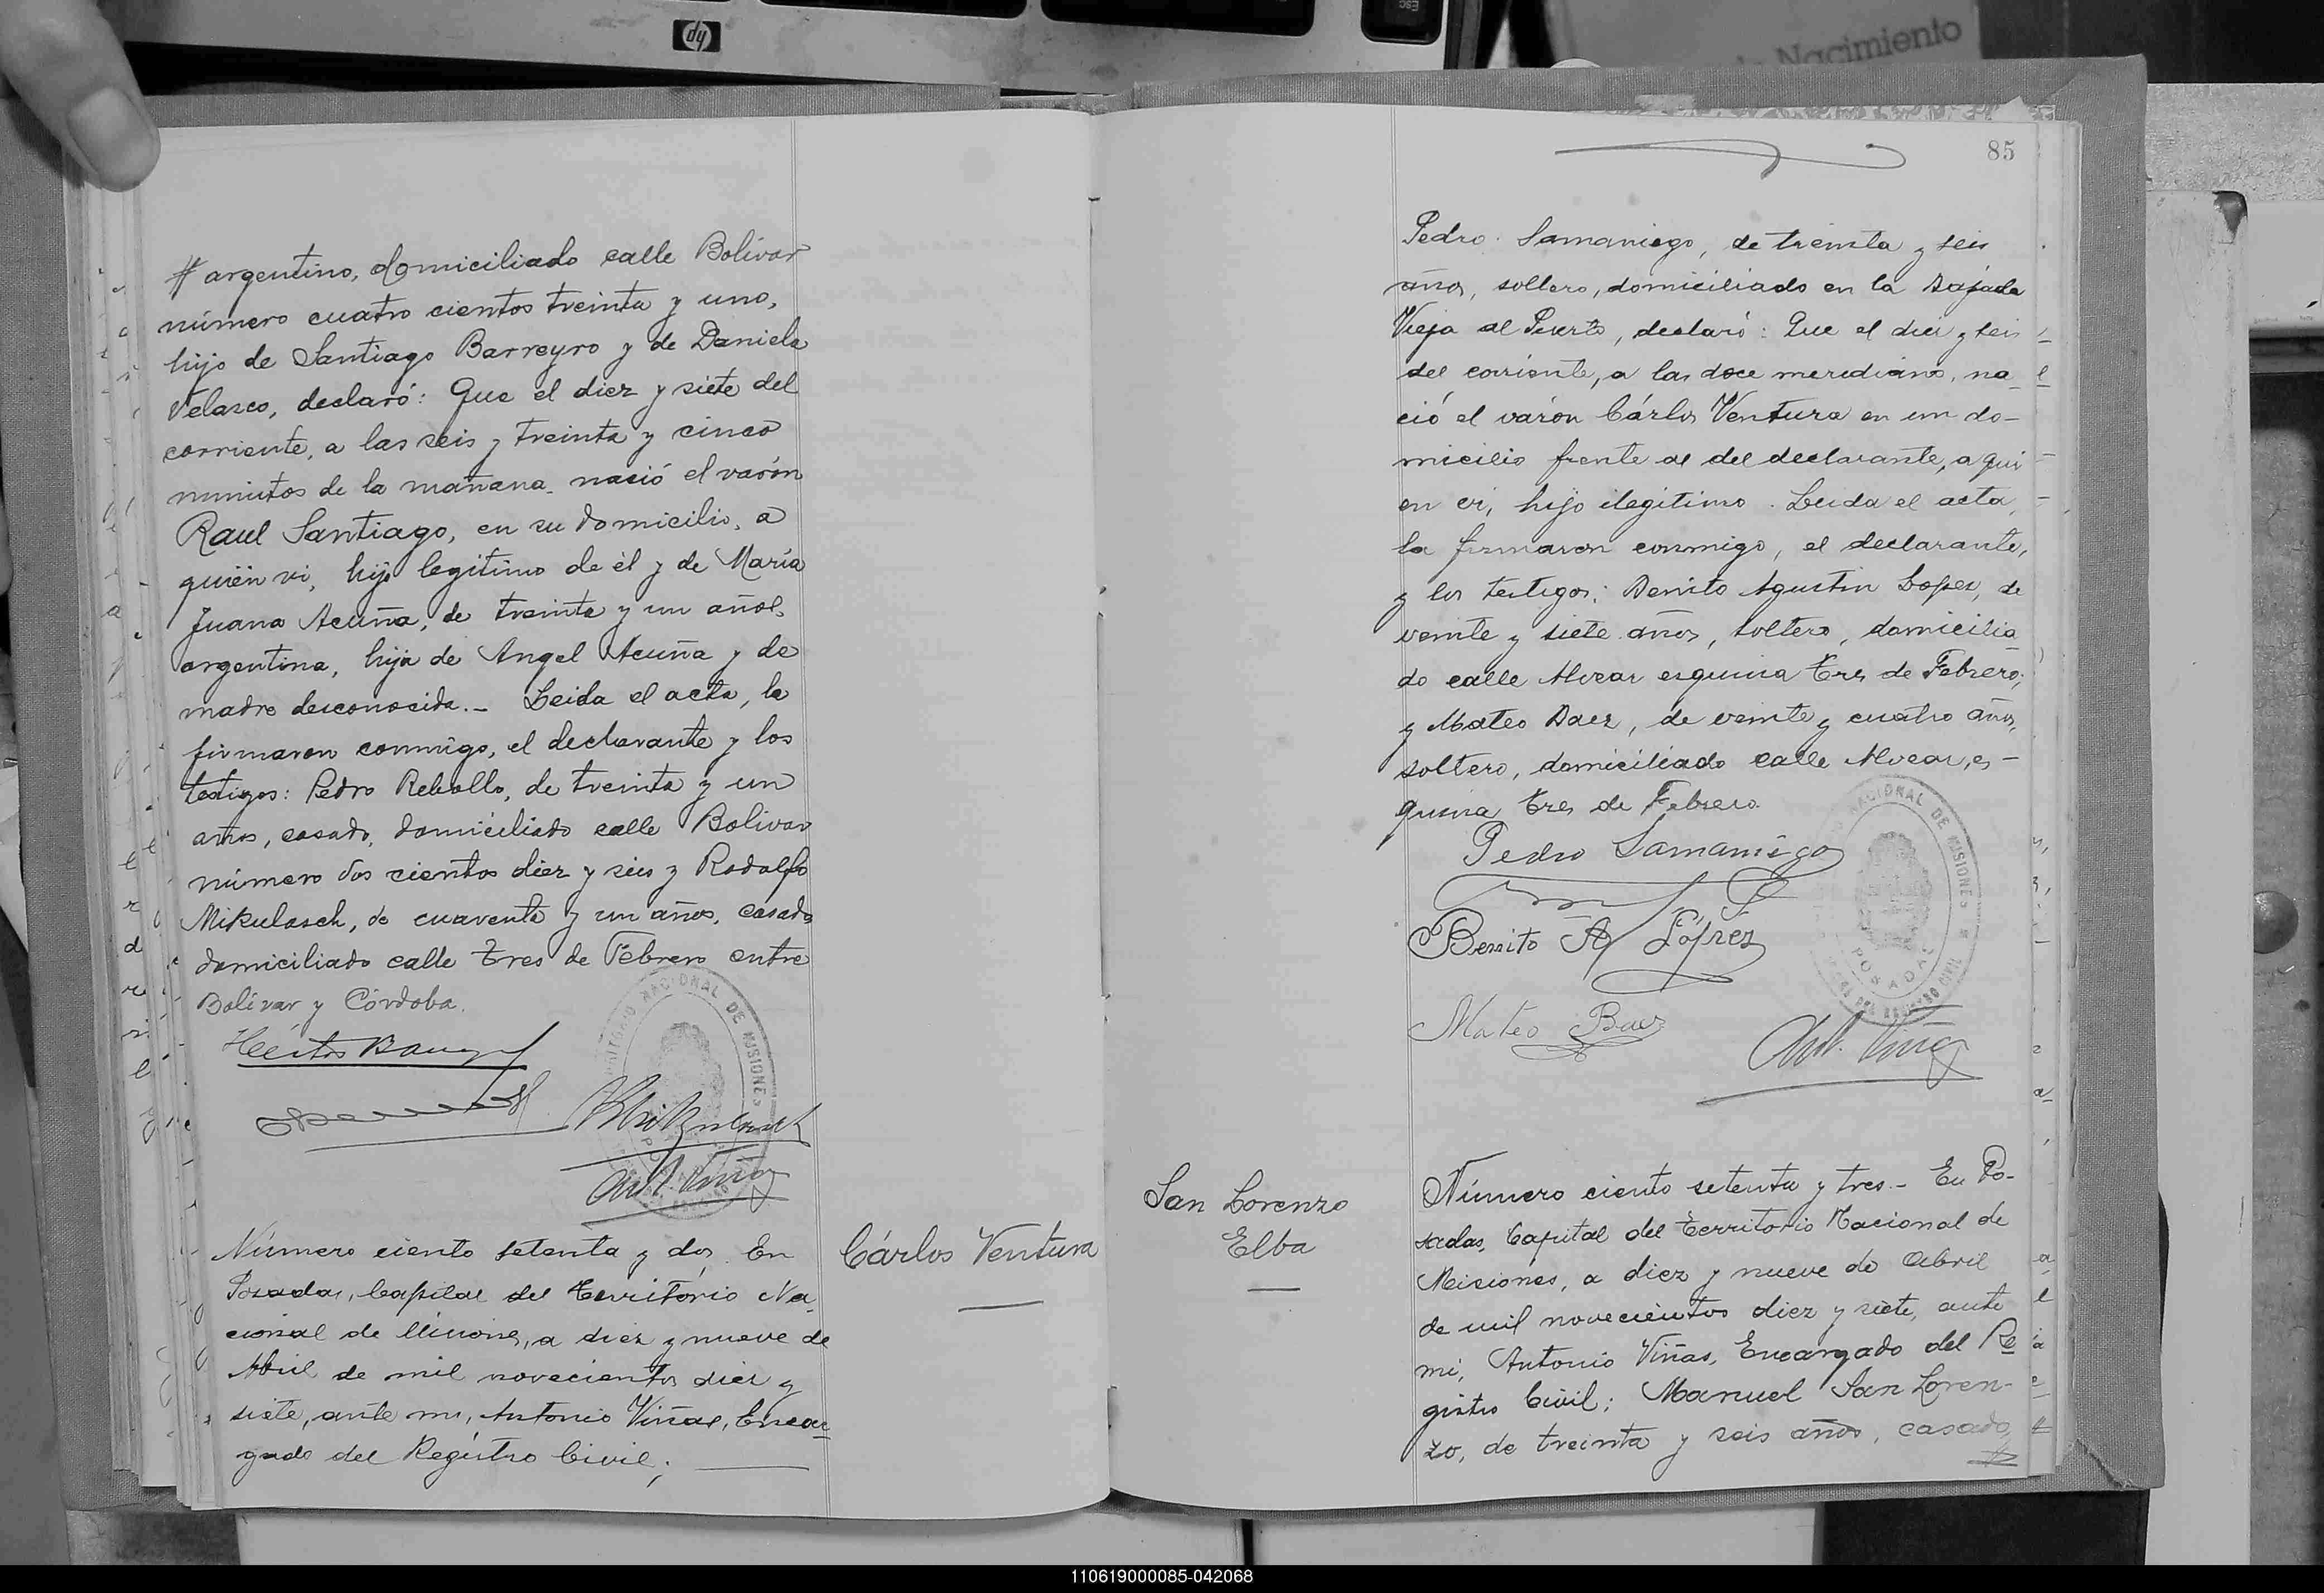 hp
ESC
de Nacimiento
# argentino, domiciliado calle Bolívar
número cuatro cientos treinta y uno,
hijo de Santiago Barreyro y de Daniela
Velasco, declaró: Que el diez y siete del
corriente, a las seis y treinta y cinco
minutos de la mañana nació el varón
Raul Santiago, en su domicilio, a
quién vi, hijo legítimo de él y de María
Juana Acuña, de treinta y un años,
argentina, hija de Angel Acuña y de
madre desconocida.- Leida el acta, la
firmaron conmigo, el declarante y los
testigos: Pedro Rebollo, de treinta y un
años, casado, domiciliado calle Bolívar
número dos cientos diez y seis y Rodolfo
Mikulasch, de cuarenta y un años, casado
domiciliado calle Tres de Febrero entre
Bolívar y Córdoba.
NACIONAL DE MISIONES
Ant. Viñas
Número ciento setenta y dos En
Posadas, Capital del Territorio Na-
cional de Misiones, a diez y nueve de
Abril de mil novecientos diez y
siete, ante mi, Antonio Viñas, Encar-
gado del Registro Civil;
Cárlos Ventura
85
Pedro Samaniego, de treinta y seis
años, soltero, domiciliado en la Bajada
Vieja al Puerto, declaró: Que el diez y seis
del corriente, a las doce meridiano, na-
ció el varón Cárlos Ventura en un do-
micilio frente al del declarante, a qui
en vi, hijo ilegítimo. Leida el acta,
la firmaron conmigo, el declarante,
y los testigos: Benito Agustin Lopez, de
veinte y siete años, soltero, domicilia
do calle Alvear esquina Tres de Febrero;
y Mateo Baez, de veinte y cuatro años,
soltero, domiciliado calle Alvear, es-
quina Tres de Febrero.
Pedro Samaniego
Benito A López
Mateo Baez
NACIONAL DE MISIONES
POSADAS
REGISTRO CIVIL
Ant. Viñas
San Lorenzo
Elba
Número ciento setenta y tres.- En Po-
sadas, Capital del Territorio Nacional de
Misiones, a diez y nueve de Abril
de mil novecientos diez y siete, ante
mi, Antonio Viñas, Encargado del Re
gistro Civil; Manuel San Loren-
zo, de treinta y seis años, casado,
#
110619000085-042068